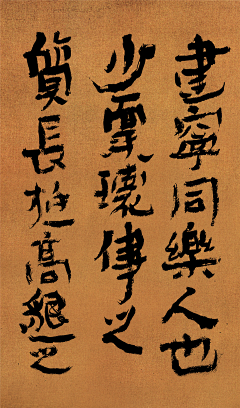 建寧同樂人也
少稟瓌偉之
質長挺高邈之